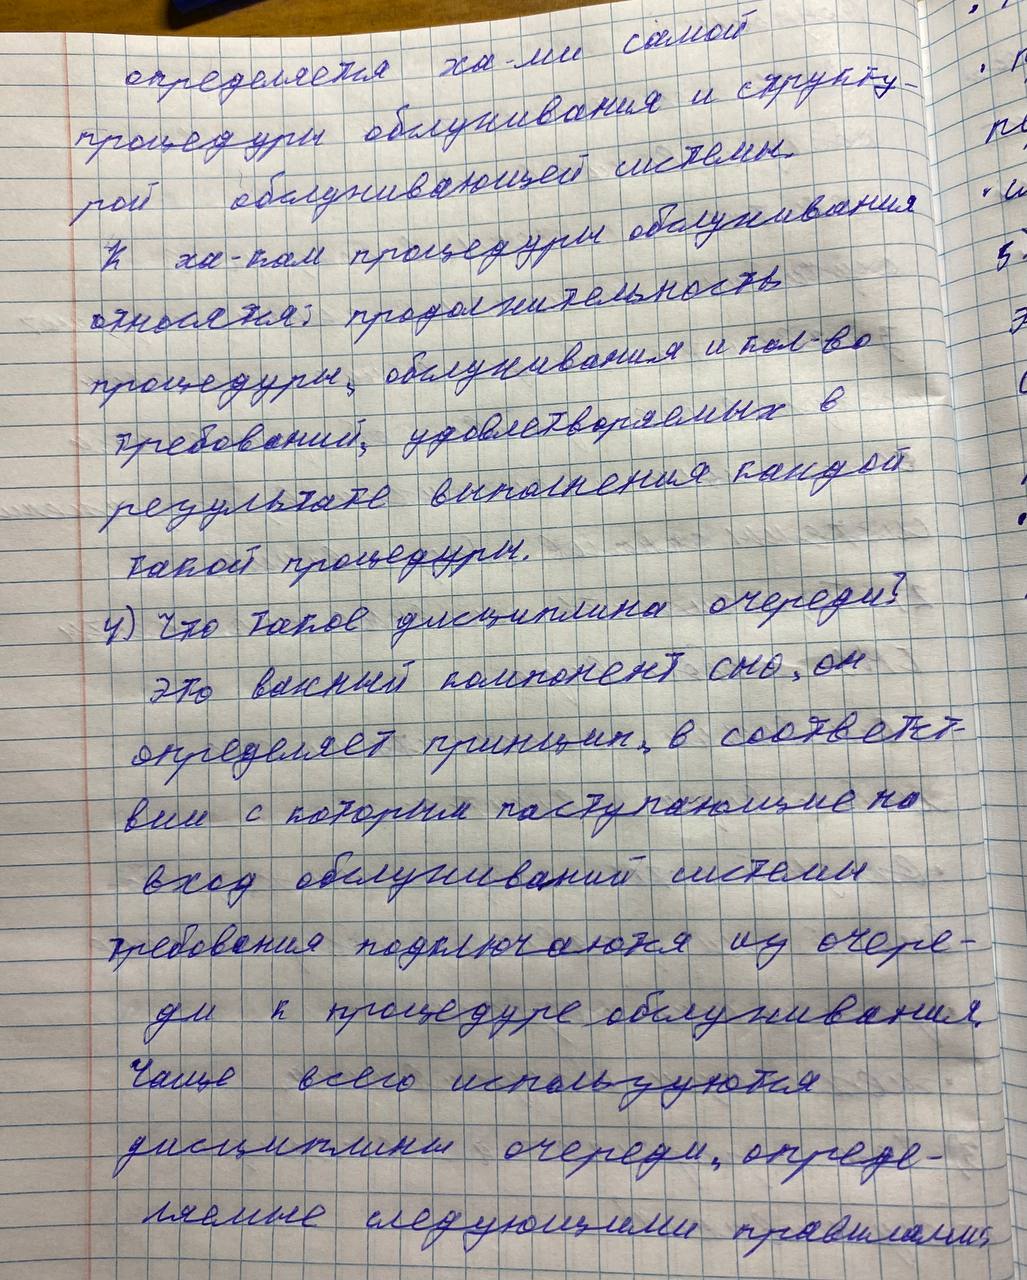 определяется ха-ми самой
процедуры обслуживания и структу-
рой обслуживающей системы.
К ха-кам процедуры обслуживания
относятся: продолжительность
процедуры, обслуживания и кол-во
требований, удовлетворяемых в
результате выполнения каждой
такой процедуры.
4) Что такое дисциплина очереди?
Это важный компонент СМО, он
определяет принцип, в соответст-
вии с которым паступающие на
вход обслуживаний системы
требования подключаются из очере-
ди к процедуре обслуживания.
Чаще всего используются
дисциплины очереди, опреде-
ляемые следующими правилами: